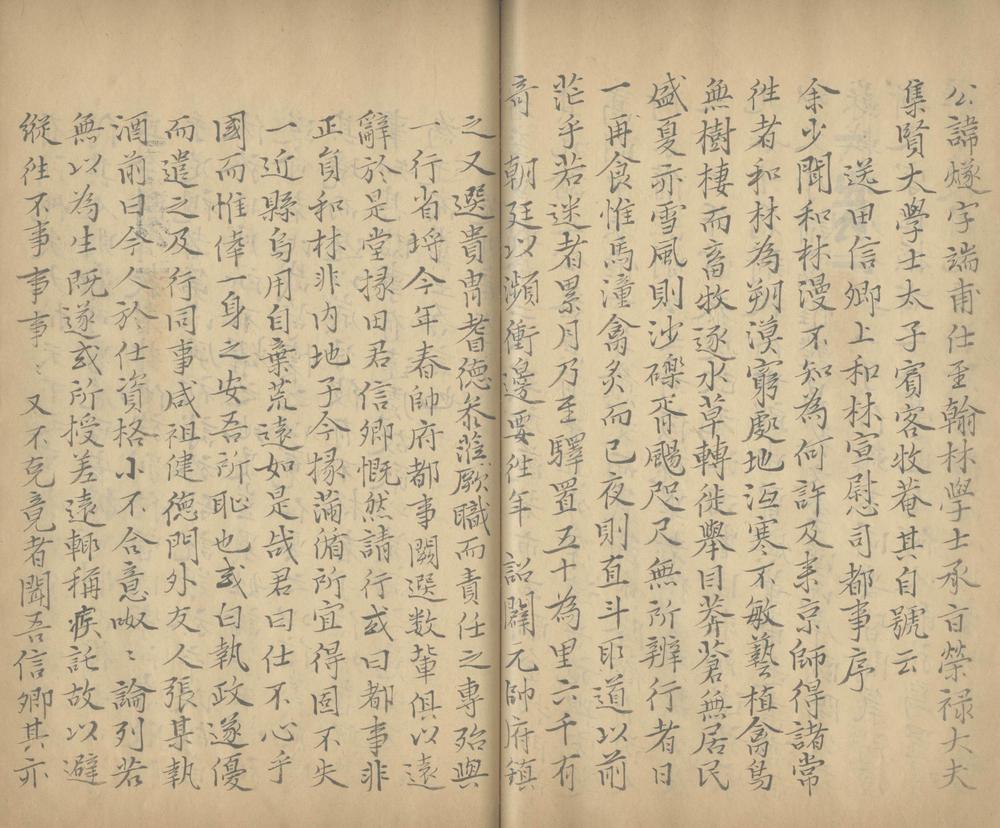 公諱燧字端甫仕至翰林學士承㫖榮祿大夫
集賢大學士太子賓客牧菴其自號云
送田信卿上和林宣慰司都事序
余少聞和林漫不知為何許及来京師得諸常
徃者和林為朔漠窮處地沍寒不敏藝植禽鳥
無樹棲而畜牧逐水草轉徙舉目莽蒼無居民
盛夏亦雪風則沙礫胥颺咫尺無所辨行者日
一再食惟馬湩禽炙而已夜則直斗取道以前
茫乎若迷者累月乃至驛置五十為里六千有
奇　朝廷以瀕衝邊要徃年　詔闢元帥府鎮
之又選貴胄耆徳叅涖厥職而責任之專殆與
一行省埒今年春帥府都事闕選数軰俱以遠
辭於是堂掾田君信卿慨然請行或曰都事非
正負和林非内地子今掾蒲滿所宜得固不失
一近縣烏用自棄荒遠如是㦲君曰仕不心乎
國而惟俸一身之安吾所恥也或曰執政遂優
而遣之及行同事咸祖健徳門外友人張某執
酒前曰今人於仕資格小不合意呶〻論列若
無以為生既遂或所授差遠輙稱疾託故以避
縱徃不事事事〻又不克竟者聞吾信卿其亦